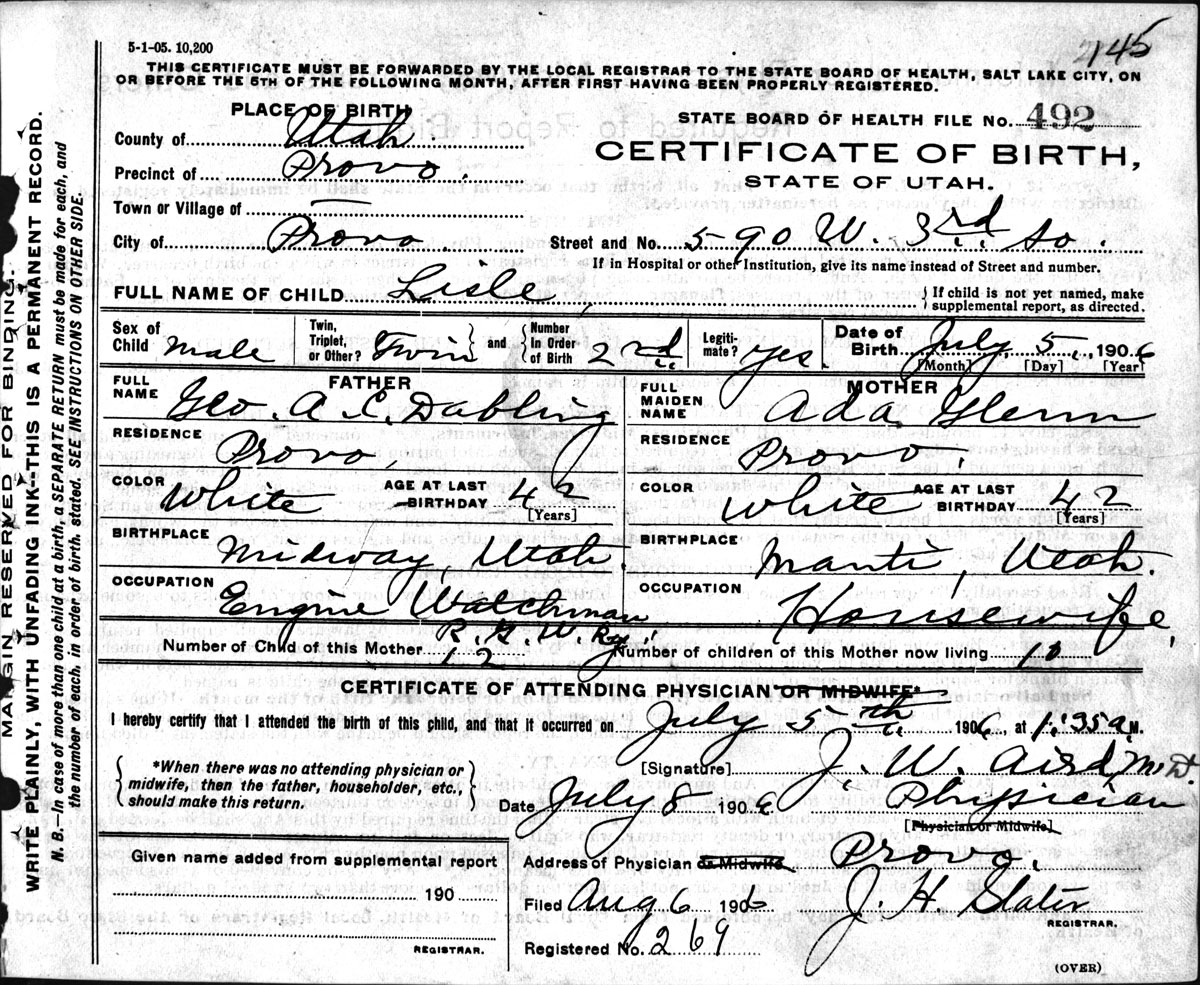 2145
5-1-05. 10,200
THIS CERTIFICATE MUST BE FORWARDED BY THE LOCAL REGISTRAR TO THE STATE BOARD OF HEALTH, SALT LAKE CITY, ON
OR BEFORE THE 5TH OF THE FOLLOWING MONTH, AFTER FIRST HAVING BEEN PROPERLY REGISTERED.
PLACE OF BIRTH
County of Utah
Precinct of Provo.
Town or Village of —
City of Provo
STATE BOARD OF HEALTH FILE No. 492
CERTIFICATE OF BIRTH,
STATE OF UTAH.
Street and No. 590 W. 3rd. So.
If in Hospital or other Institution, give its name instead of Street and number.
FULL NAME OF CHILD Lisle, { If child is not yet named, make
supplemental report, as directed.
Sex of Child male
Twin, Triplet, or Other? Twin and { Number In Order of Birth 2nd.
Legiti-mate? yes.
Date of Birth July 5, 1906
[Month] [Day] [Year]
FATHER
FULL NAME Geo. A. C. Dabling
RESIDENCE Provo,
COLOR White AGE AT LAST BIRTHDAY 42
[Years]
BIRTHPLACE Midway, Utah.
OCCUPATION Engine Watchman
R. G. W. Ry.
MOTHER
FULL MAIDEN NAME Ada Glenn
RESIDENCE Provo.
COLOR White AGE AT LAST BIRTHDAY 42
[Years]
BIRTHPLACE Manti, Utah.
OCCUPATION Housewife,
Number of Child of this Mother 12 Number of children of this Mother now living 10
CERTIFICATE OF ATTENDING PHYSICIAN OR MIDWIFE*
I hereby certify that I attended the birth of this child, and that it occurred on July 5th. 1906, at 1:35 a. M.
{ *When there was no attending physician or
midwife, then the father, householder, etc.,
should make this return. }
[Signature] J. W. Aird M.D.
Date July 8 1906 Physician
[Physician or Midwife]
Given name added from supplemental report
190
REGISTRAR.
Address of Physician or Midwife Provo.
Filed Aug 6 1906 J. H. Slater
REGISTRAR.
Registered No. 269
(OVER)
MARGIN RESERVED FOR BINDING.
WRITE PLAINLY, WITH UNFADING INK—THIS IS A PERMANENT RECORD.
N. B.—In case of more than one child at a birth, a SEPARATE RETURN must be made for each, and
the number of each, in order of birth, stated. SEE INSTRUCTIONS ON OTHER SIDE.